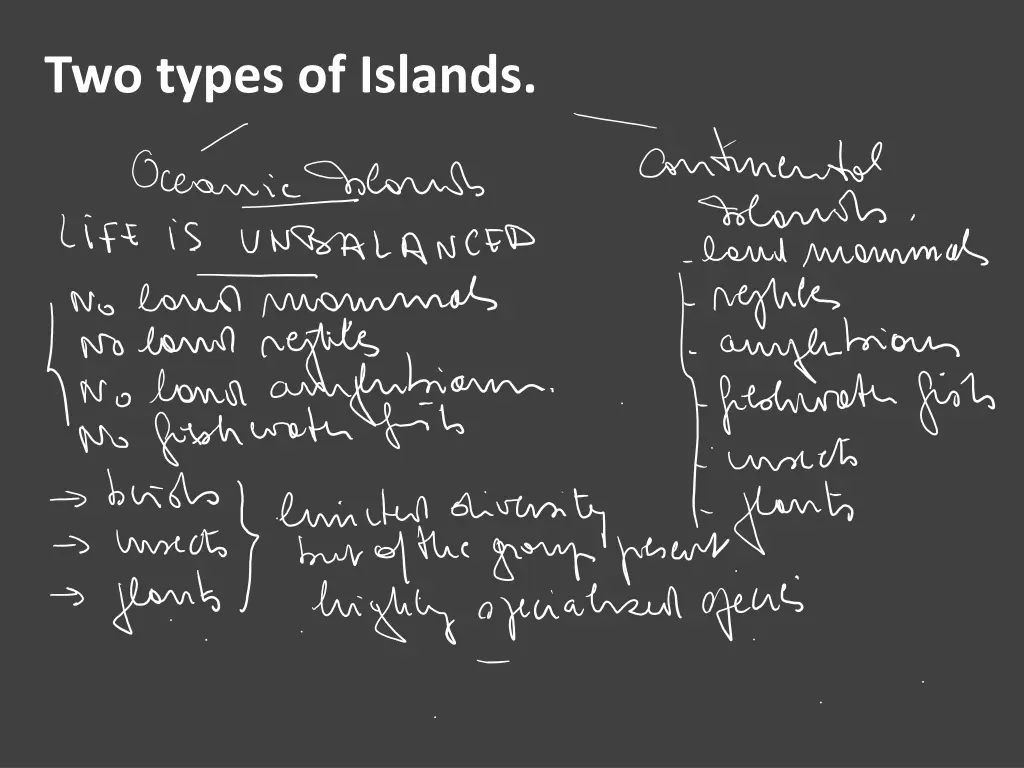 Two types of Islands.
Oceanic Islands
LIFE IS UNBALANCED
No land mammals
No land reptiles
No land amphibians.
No freshwater fish
→ birds
→ insects
→ plants
limited diversity
but of the group present
highly specialized species
Continental
Islands.
- land mammals
- reptiles
- amphibians
- freshwater fish
- insects
- plants